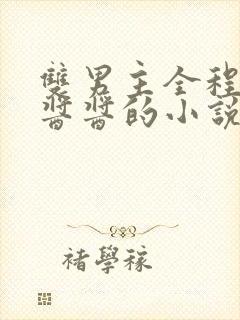 雙男主全程
醬醬的小說
褚學稼